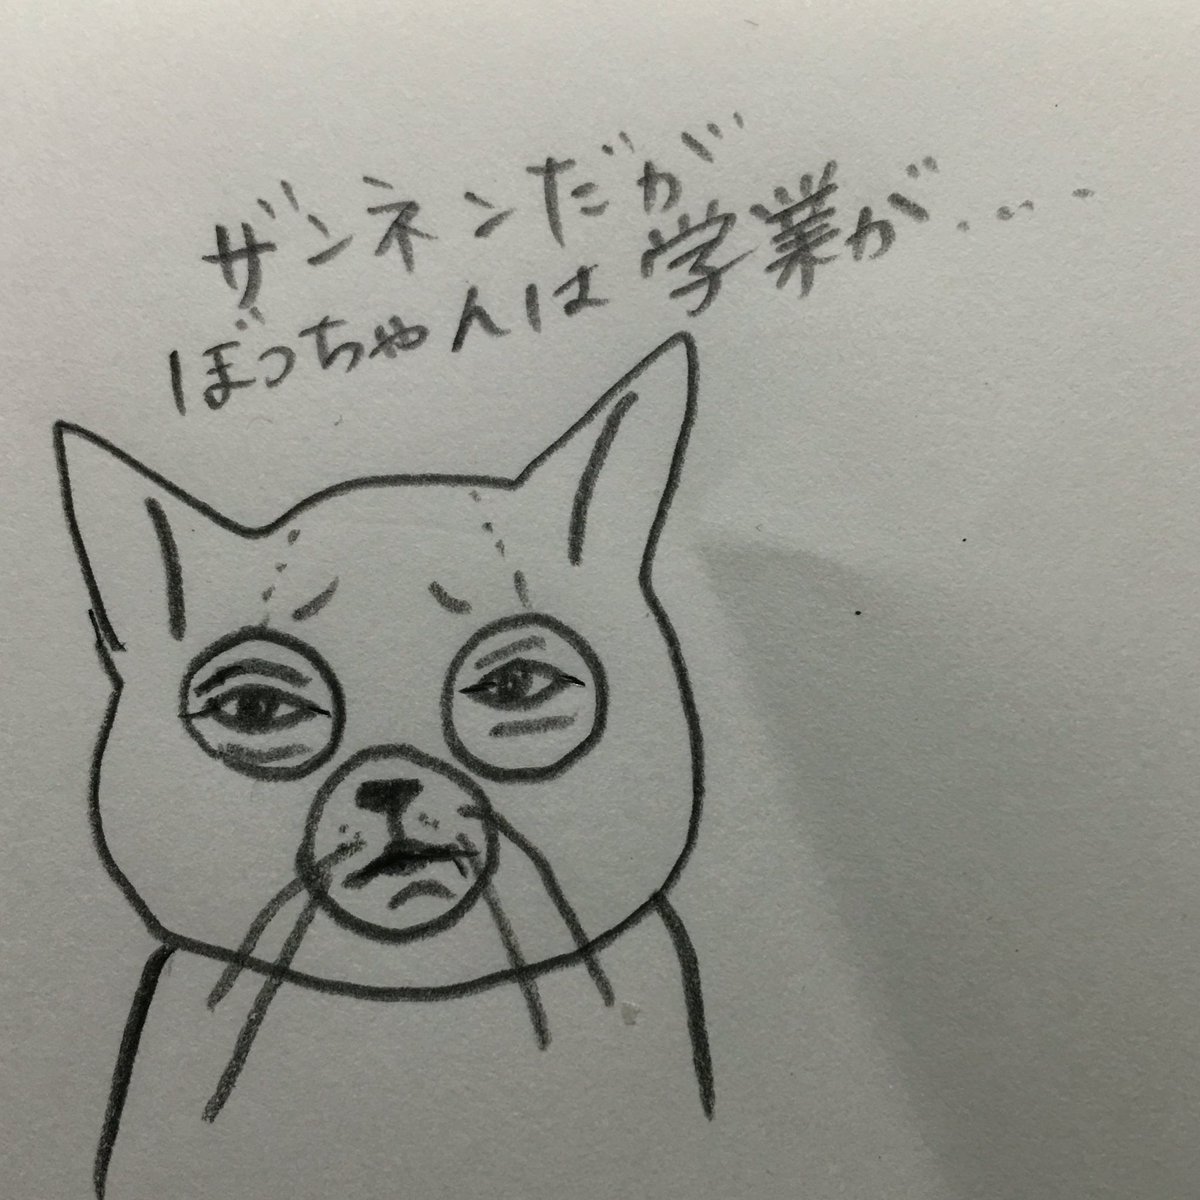 ザンネンだが
ぼっちゃんは学業が....